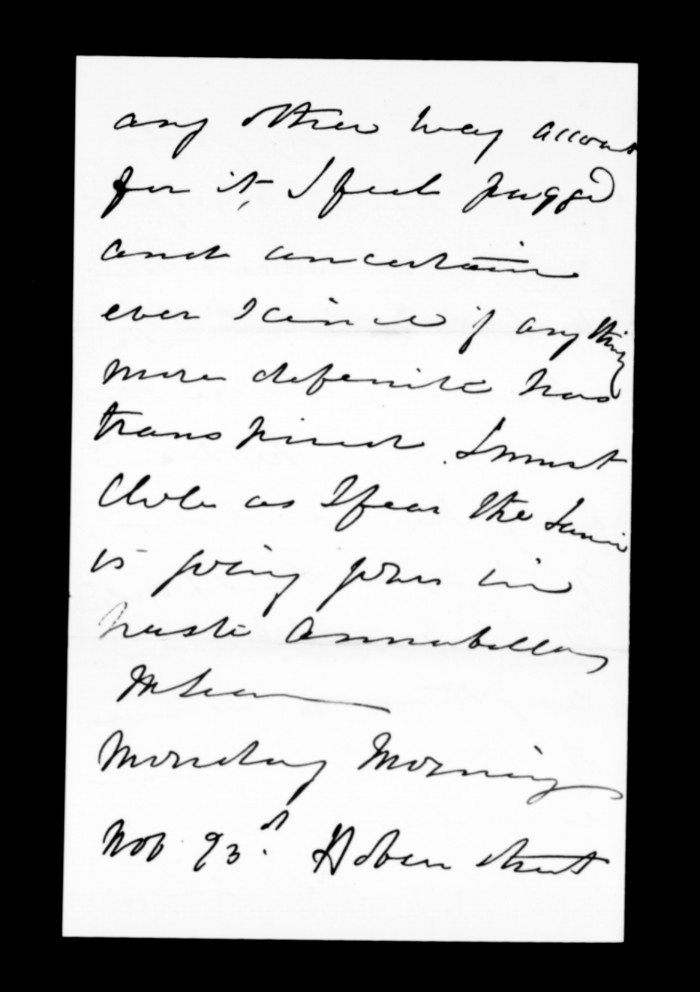 any other way account
for it, I feel fagged
and uncertain
ever since if anything
more definite has
transpired. I must
Close as I fear the
is going yours in
haste Annabella
McLean
Monday Morning
Nov 23d Hobson street